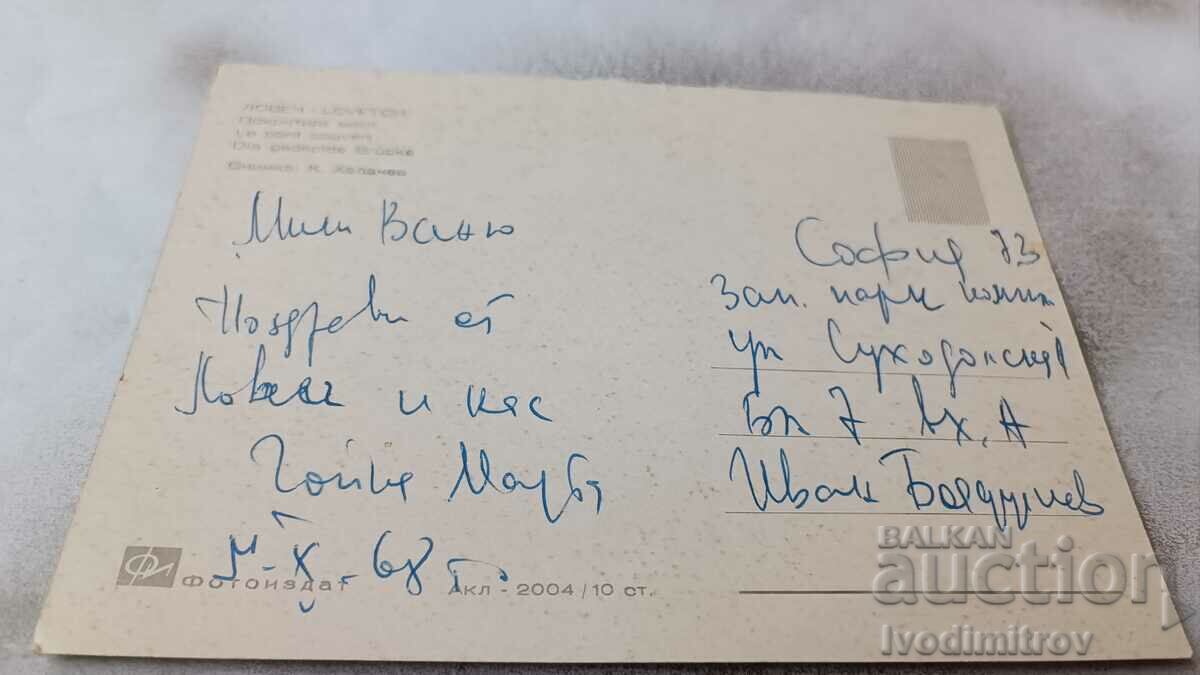 ЛОВЕЧ - LOVETCH
Покритият мост
Le pont couvert
Die gedeckte Brücke
Снимка: К.
Мили Ваньо
Поздрави от
Ловеч и нас
София 73
Зап. парк
ул Суходолска
Бл 7 Вх. А
Иван
X 68 г.
Фотоиздат
Акл - 2004/10 ст.
BALKAN
auction
Ivodimitrov